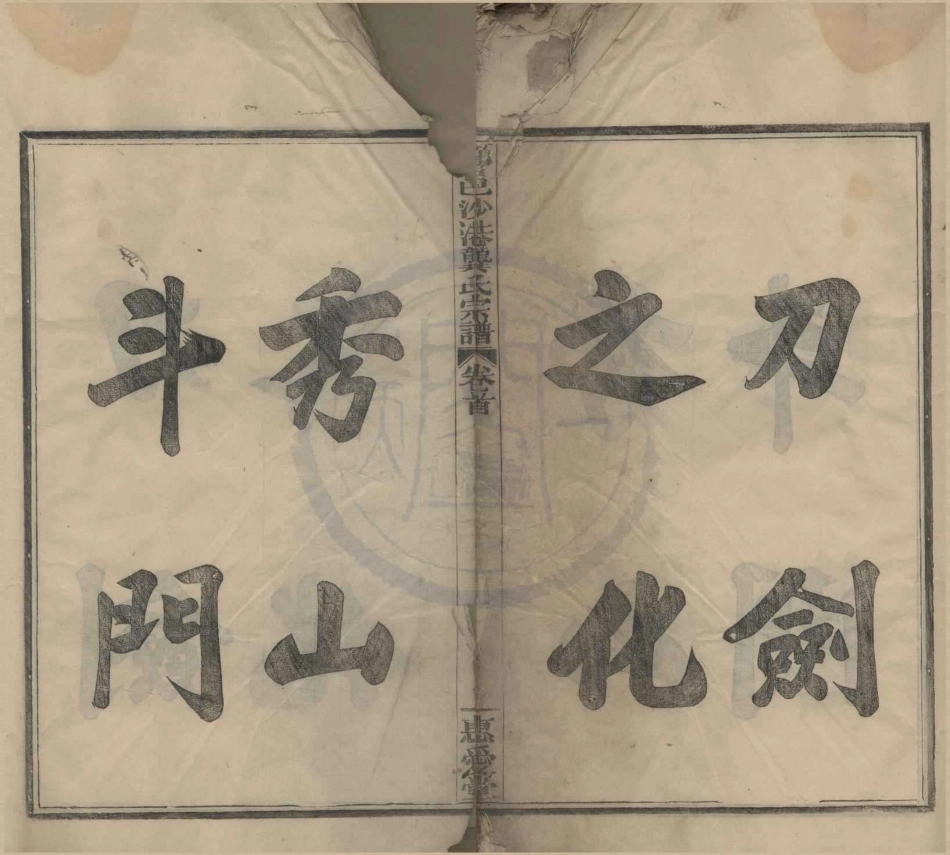 刀劍
之化
邑沙港龔氏宗譜 卷首
惠愛堂
秀山
斗門